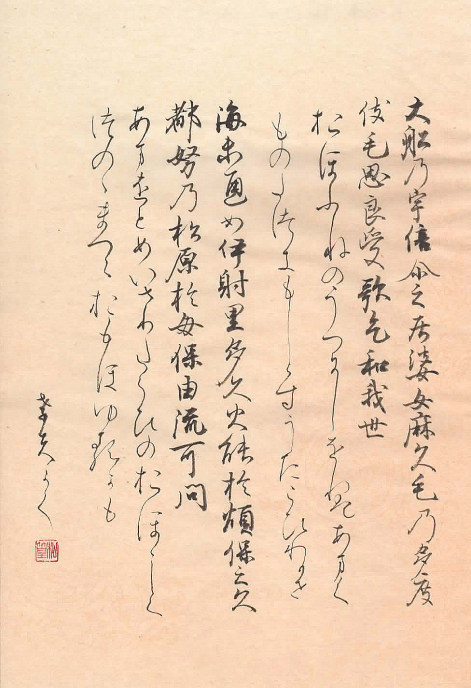 大船乃宇倍尓之居婆安麻久毛乃多度
伎毛思良受歌乞和我世
おほふねのうへにしをれはあまく
ものたつきもしらすうたこひわかせ
海未通女伊射里多久火能於煩保之久
都努乃松原於母保由流可問
あまをとめいさりたくひのおほゝしく
つのゝまつはらおもほゆるかも